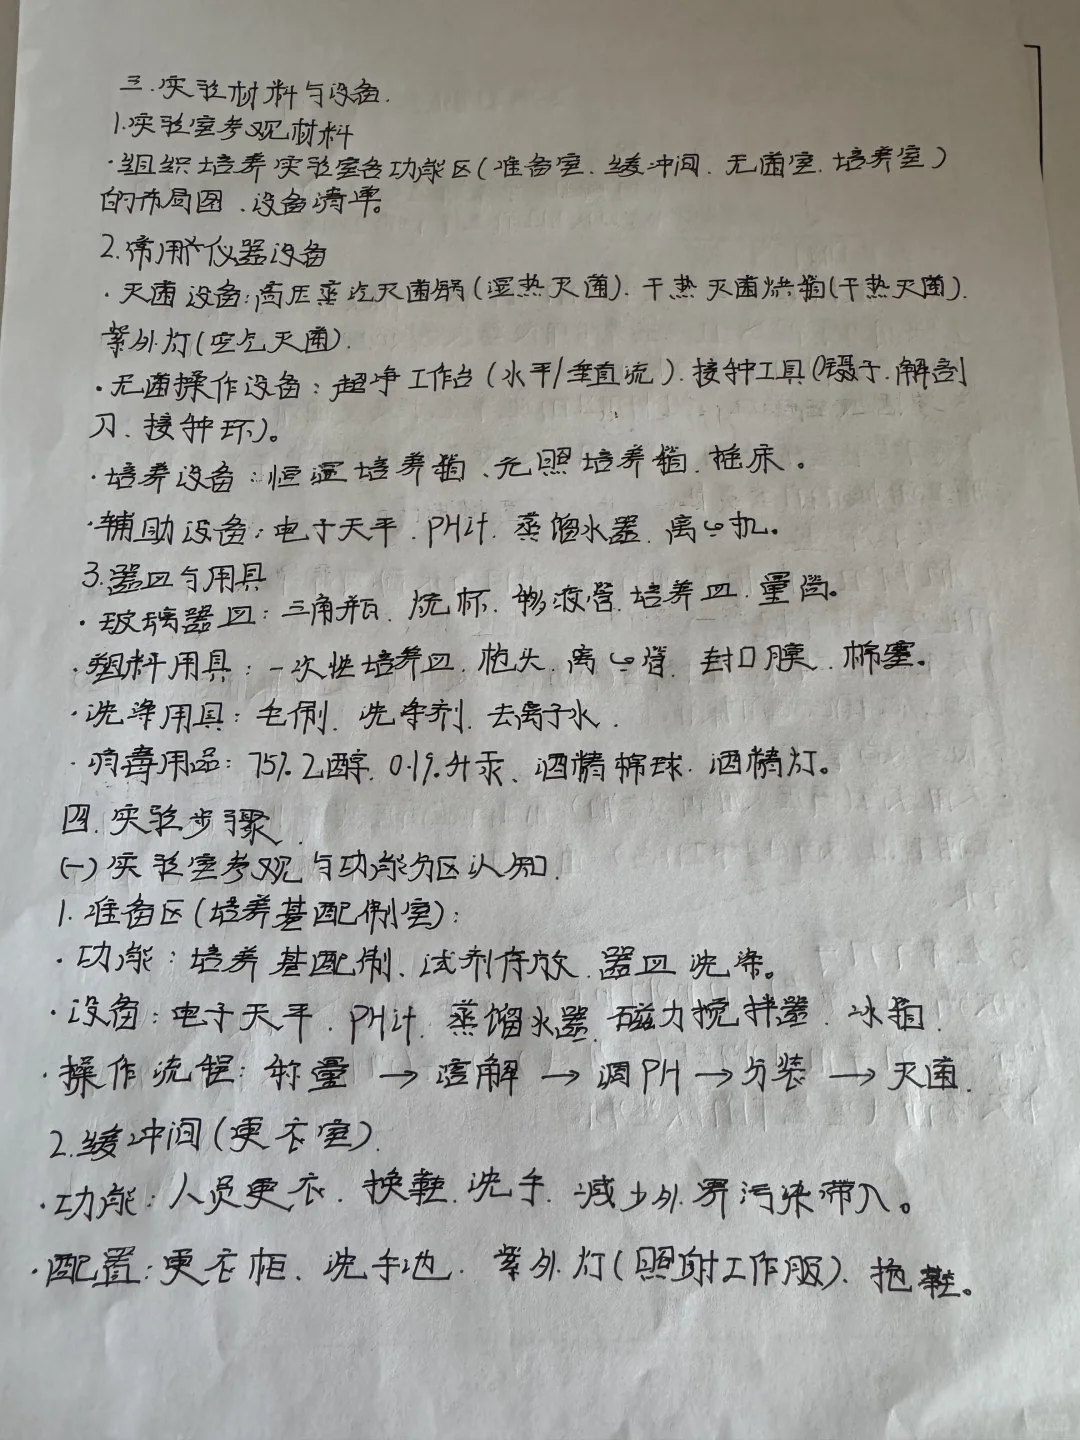 三.实验材料与设备.
1.实验室参观材料
·组织培养实验室各功能区(准备室.缓冲间.无菌室.培养室)
的布局图、设备清单。
2.常用仪器设备
·灭菌设备:高压蒸汽灭菌锅(湿热灭菌).干热灭菌烘箱(干热灭菌).
紫外灯(空气灭菌).
·无菌操作设备:超净工作台(水平/垂直流).接种工具(镊子.解剖
刀、接种环)。
·培养设备:恒温培养箱、光照培养箱.摇床。
·辅助设备:电子天平.PH计.蒸馏水器.离心机。
3.器皿与用具
·玻璃器皿:三角瓶.烧杯.移液管.培养皿.量筒。
·塑料用具:一次性培养皿.枪头.离心管.封口膜.棉塞。
·洗涤用具:毛刷.洗净剂.去离子水.
·消毒用品:75%乙醇.0.1%升汞、酒精棉球.酒精灯。
四.实验步骤.
(一)实验室参观与功能分区认知.
1.准备区(培养基配制室):
·功能:培养基配制、试剂存放.器皿洗涤。
·设备:电子天平.PH计.蒸馏水器.磁力搅拌器.冰箱.
·操作流程:称量→溶解→调PH→分装→灭菌.
2.缓冲间(更衣室).
·功能:人员更衣.换鞋.洗手.减少外界污染带入。
·配置:更衣柜、洗手池.紫外灯(照射工作服)、拖鞋。